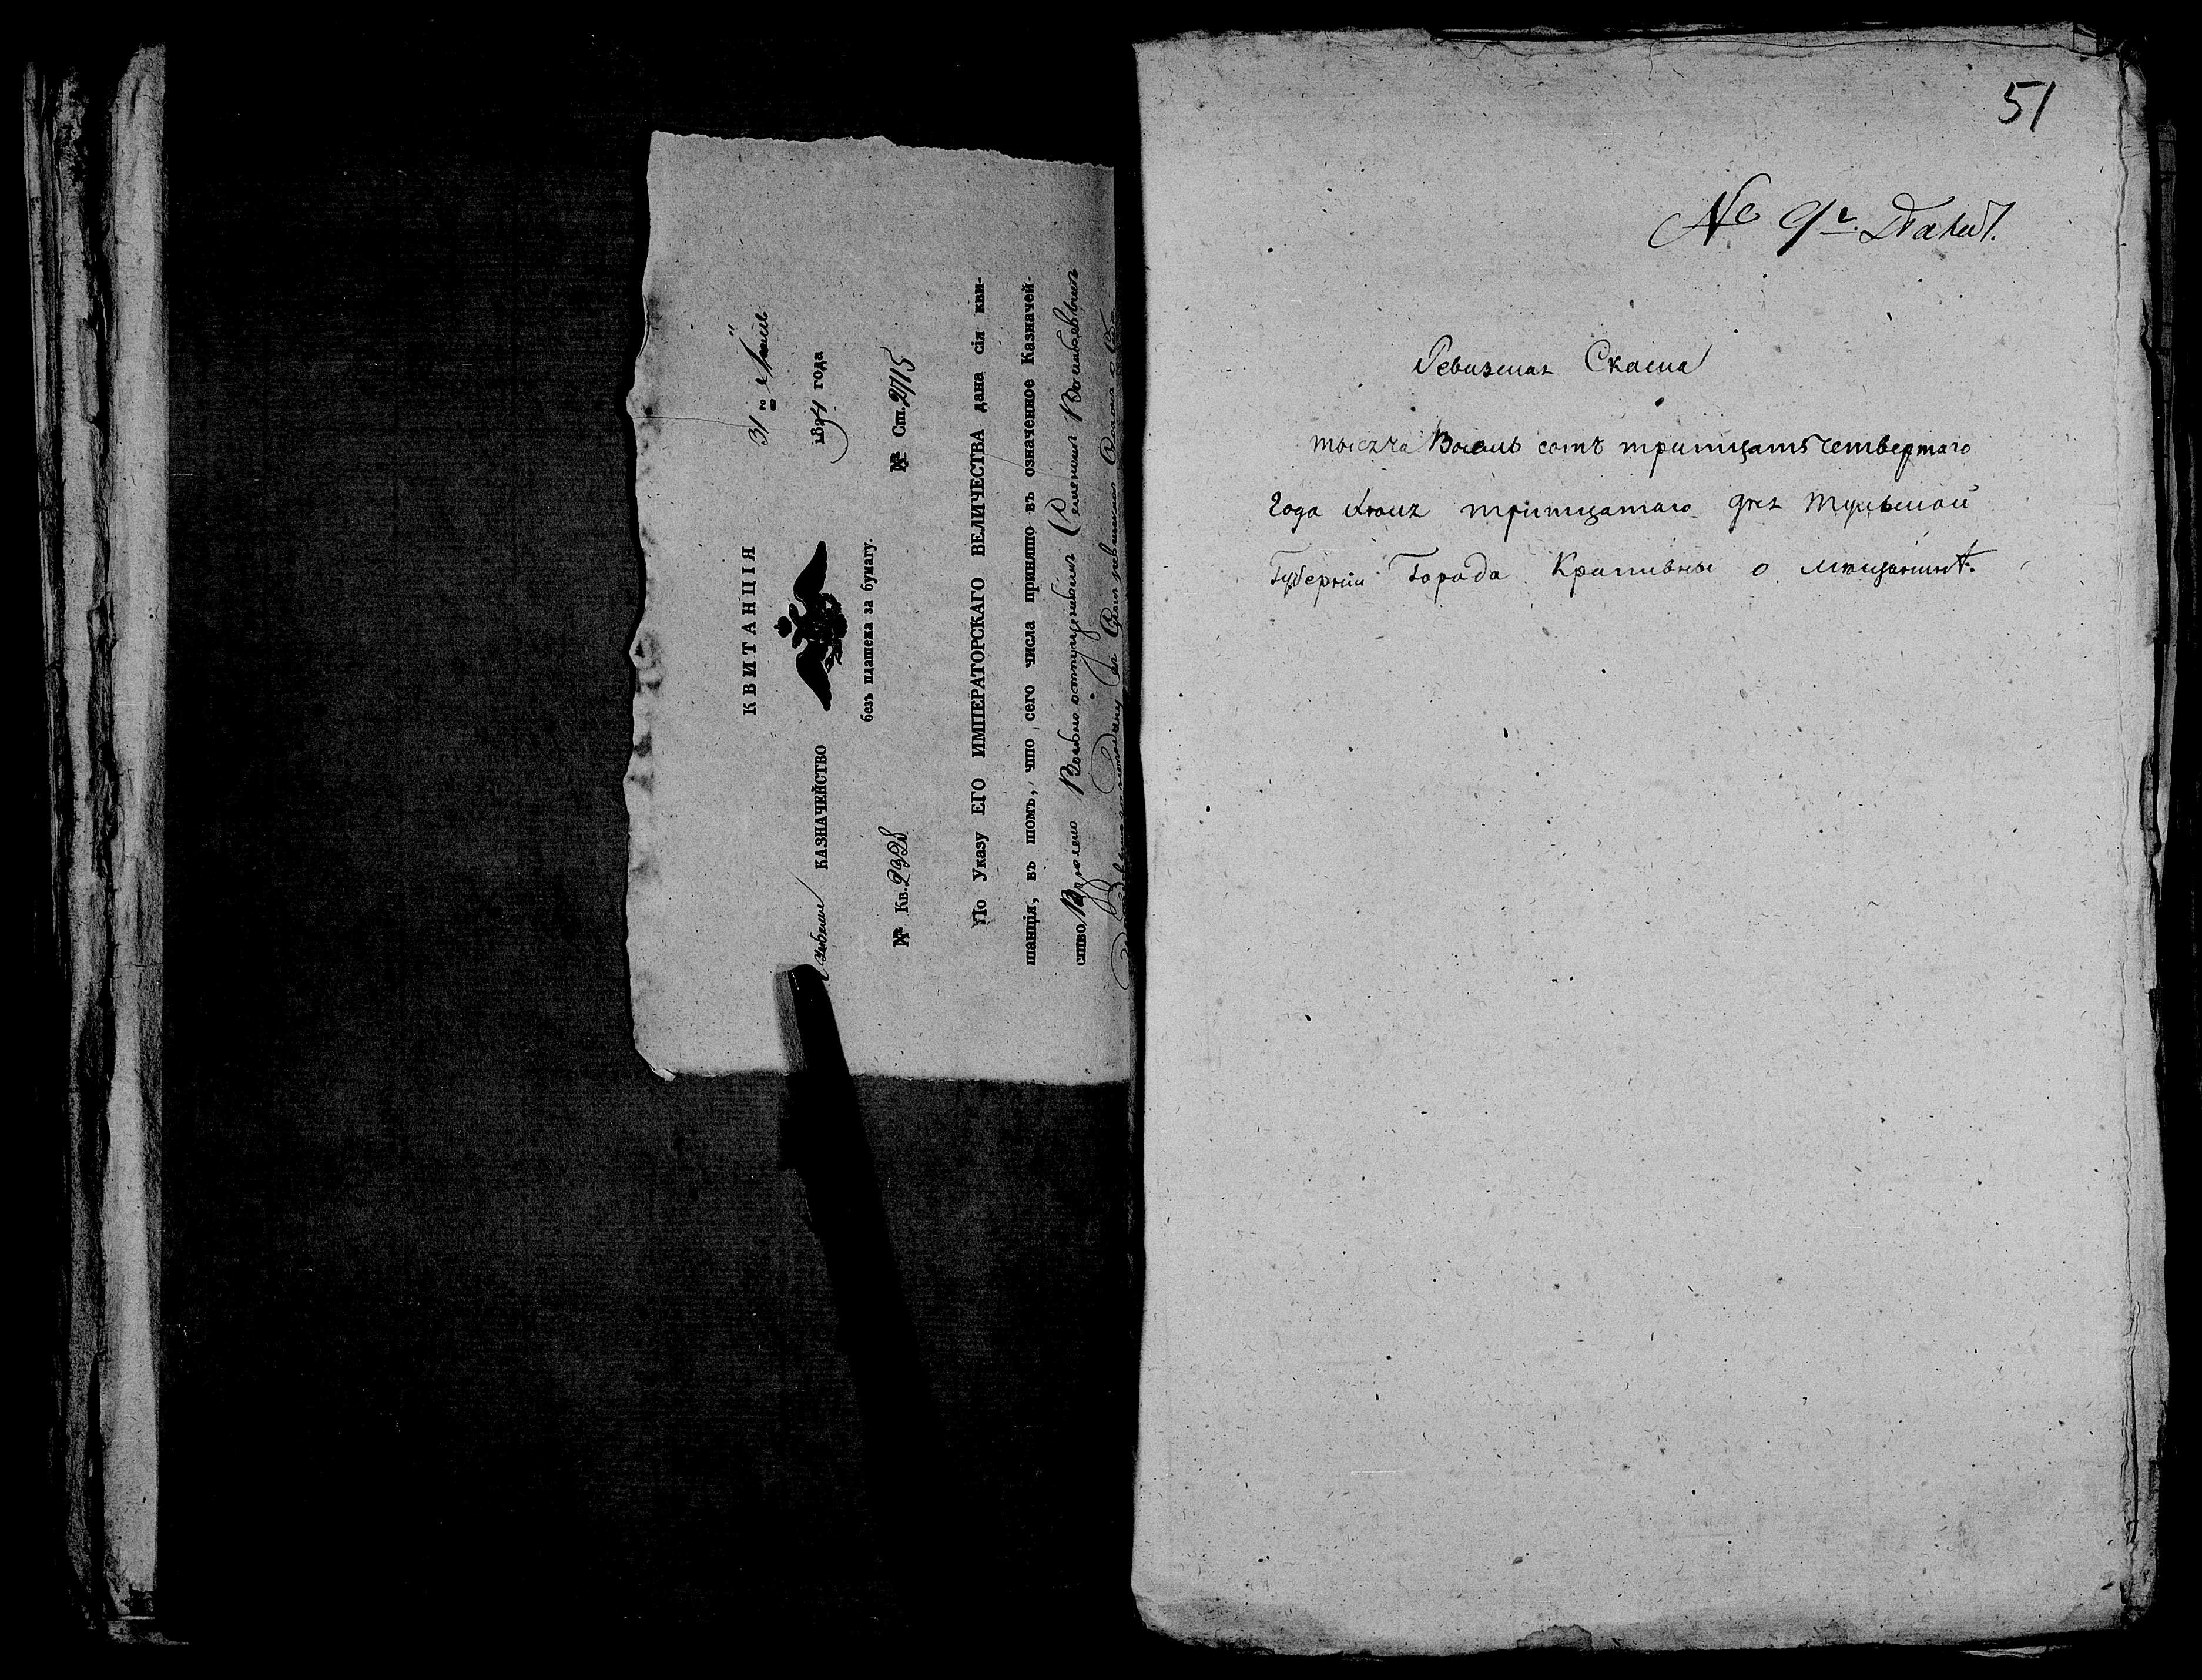 КВИТАНЦІЯ
31го
КАЗНАЧЕЙСТВО
1834 года
безъ платежа за бумагу.
№ Кв. 2328
№ Ст. 2715
По Указу ЕГО ИМПЕРАТОРСКАГО ВЕЛИЧЕСТВА дана сія кви-
танція, въ томъ, что сего числа принято въ означенное Казначей-
ство
51
№ 9й
Ревизская Скаска
тысяча Восемь сотъ тритцать четвертаго
года Июня тритцатаго дня Тульской
Губернии Города Крапивны о мещанинѣ.